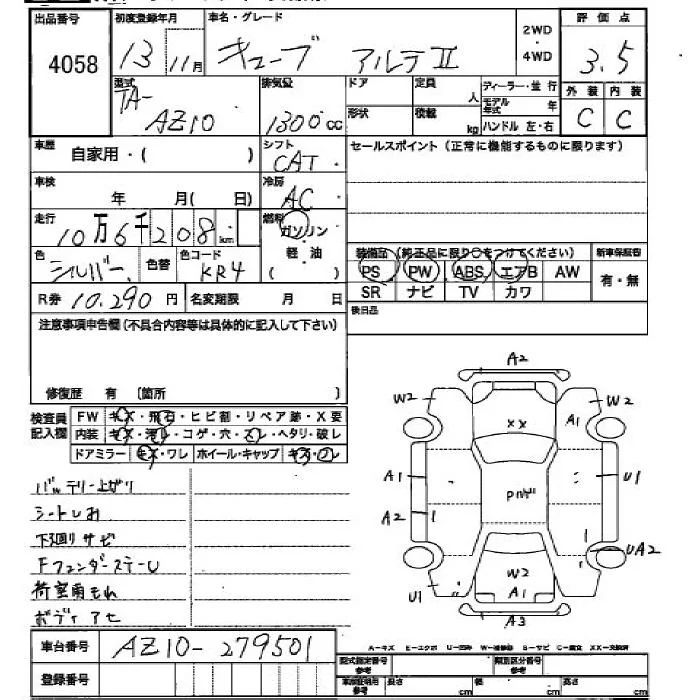 出品番号 初度登録年月 車名・グレード 2WD・4WD 評価点
4058 13 11月 キューブ アルテⅡ 3.5
型式 排気量 ドア 定員 人 ディーラー・並行 外装 内装
TA-AZ10 1300cc 形状 積載 kg モデル年式 年 ハンドル 左・右 C C
車歴 自家用・( ) シフト CAT セールスポイント(正常に機能するものに限ります)
車検 年 月( 日) 冷房 AC
走行 10万6千208km 燃料 ガソリン・軽油( )
色 シルバー 色替 色コード KR4
装備品(純正品に限り○をつけてください) 新車保証書
PS PW ABS エアB AW 有・無
SR ナビ TV カワ
R券 10,290円 名変期限 月 日 後日品
注意事項申告欄(不具合内容等は具体的に記入して下さい)
修復歴 有 〔箇所 〕
検査員記入欄 FW キズ・飛石・ヒビ割・リペア跡・X要
内装 キズ・汚レ・コゲ・穴・スレ・ヘタリ・破レ
ドアミラー キズ・ワレ ホイール・キャップ キズ・ワレ
バッテリー上がり
シートしお
下廻りサビ
FフェンダーステーU
荷室雨もれ
ボディアセ
A2
W2 W2
XX A1
A1 U1
A2 UA2
W2
U1 A1
A3
車台番号 AZ10-279501
A-キズ E-エクボ U-凹ミ W-補修跡 S-サビ C-腐食 XX-交換済
登録番号 型式指定番号 参考 類別区分番号 参考
車庫証明用 参考 長さ cm 幅 cm 高さ cm